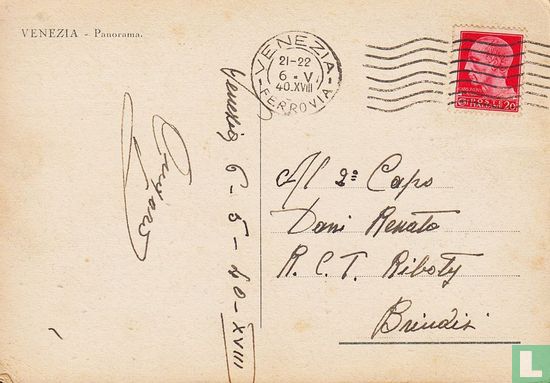 VENEZIA - Panorama.
VENEZIA
21-22
6 - V
40.XVIII
FERROVIA
Venezia 6 - 5 - 40 - XVIII
Al 2º Capo
Dani Renato
R. C. T. Riboty
Brindisi
catawiki